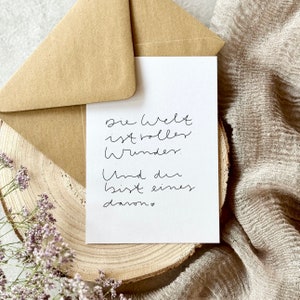 Die Welt
ist voller
Wunder
Und du
bist eines
davon.